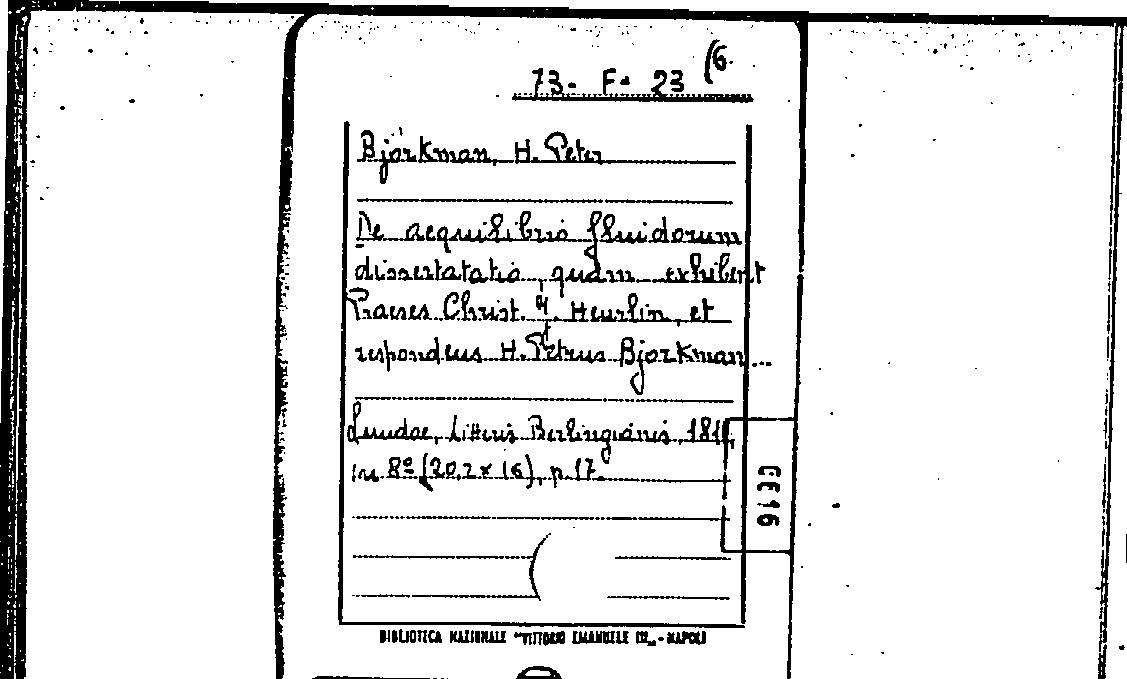 73- F- 23 (6.
Björkman, H. Peter
De aequilibrio fluidorum
dissertatatio, quam exhibent
Praeses Christ. Heurlin, et
respondens H. Petrus Bjorkman...
Lundae, Litteris Berlingianis,
in 8º (20,2 x 16), p. 17.
CE16
BIBLIOTECA NAZIONALE "VITTORIO EMANUELE III" - NAPOLI